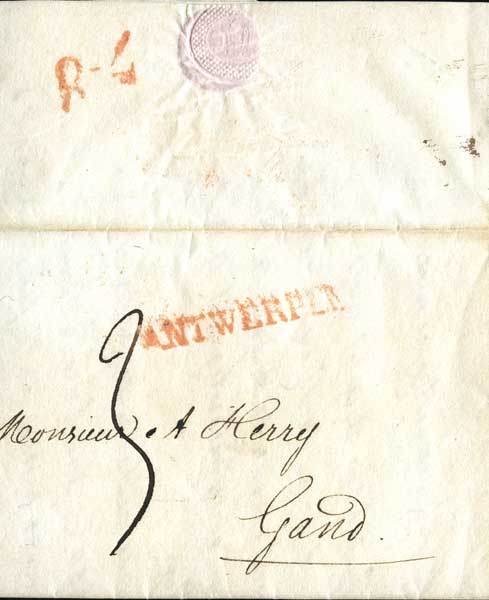 R-4
ANTWERPEN
3
Monsieur A Herry
Gand.